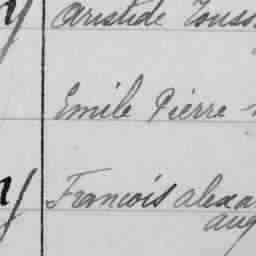 y Aristide Touss
Emile Pierre
y François Alexa
aug